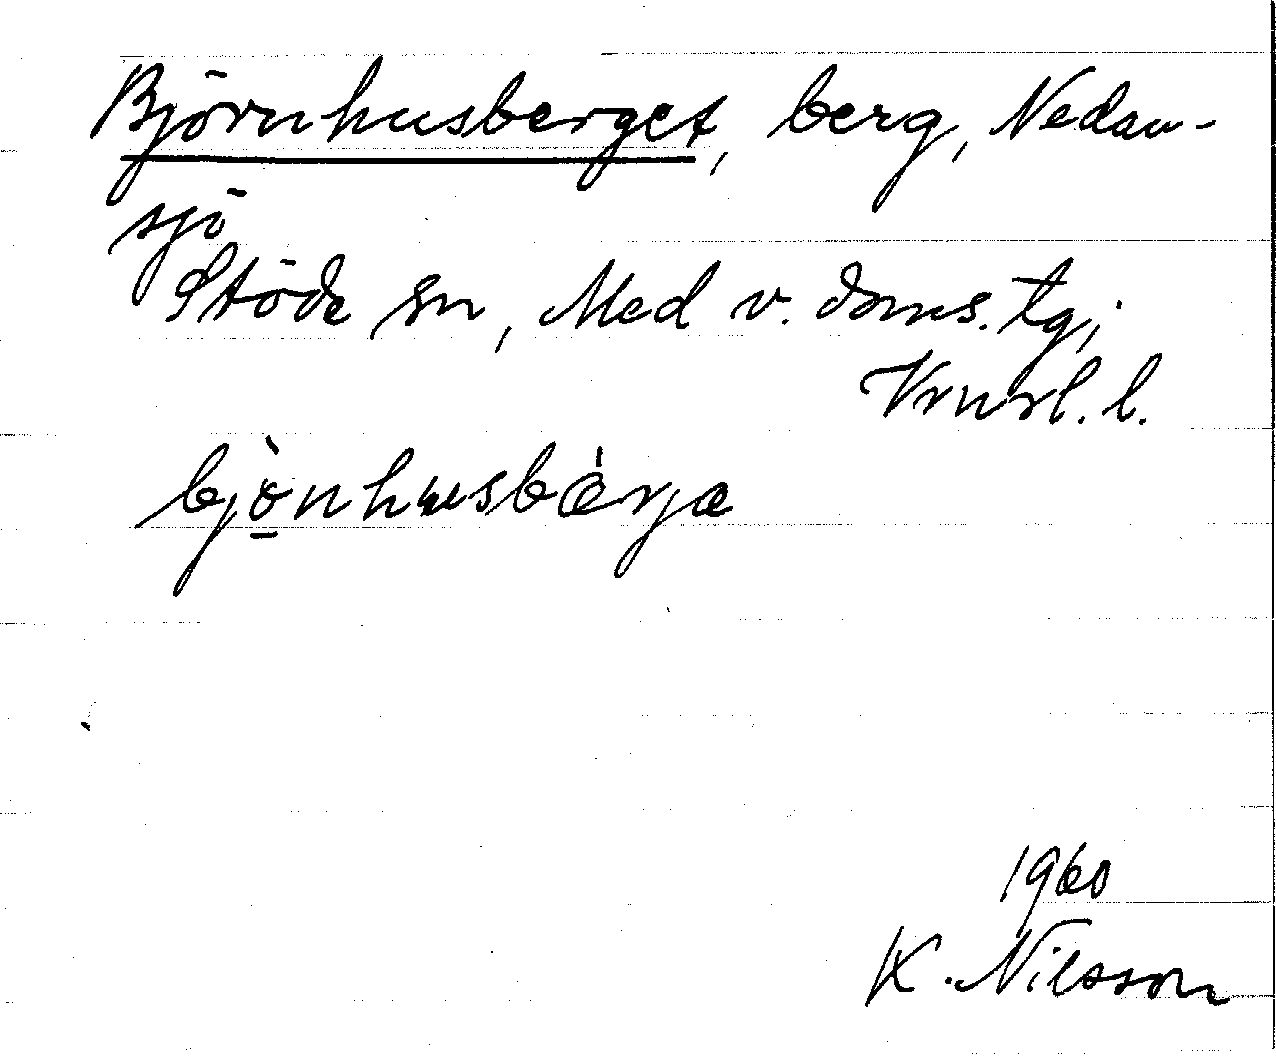 Björnhusberget, berg, Nedan-
sjö
Stöde sn, Med v. doms. tg;
Vrnrl. l.
bjònhusbæ̀rja
1960
K. Nilsson